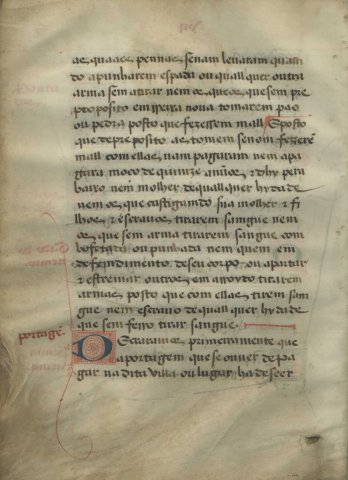 as quaaes pennas senam levaram quan
do apunharem espada ou quall quer outra
arma sem a tirar nem os que sem pre
posito em rreixa nova tomarem pao
ou pedra posto que fezessem mall E posto
que de preposito as tomem se nom fezerem
mall com ellas nam pagaram nem a pa
gara moço de quinze annos e dhy pera
baixo nem molher de quall quer hydade
nem os que castigando sua molher e fi
lhos e escravos tirarem samgue nem
os que sem arma tirarem sangue com
bofetada ou punhada nem quem em
defendimento de seu corpo ou apartar
e estremar outros em arroydo tirarem
armas posto que com ellas tirem sam
gue nem escravo de quall quer hydade
que sem ferro tirar sangue
portage
Decraramos primeiramente que
a portagem que se ouver de pa
gar na dita villa ou lugar ha de seer